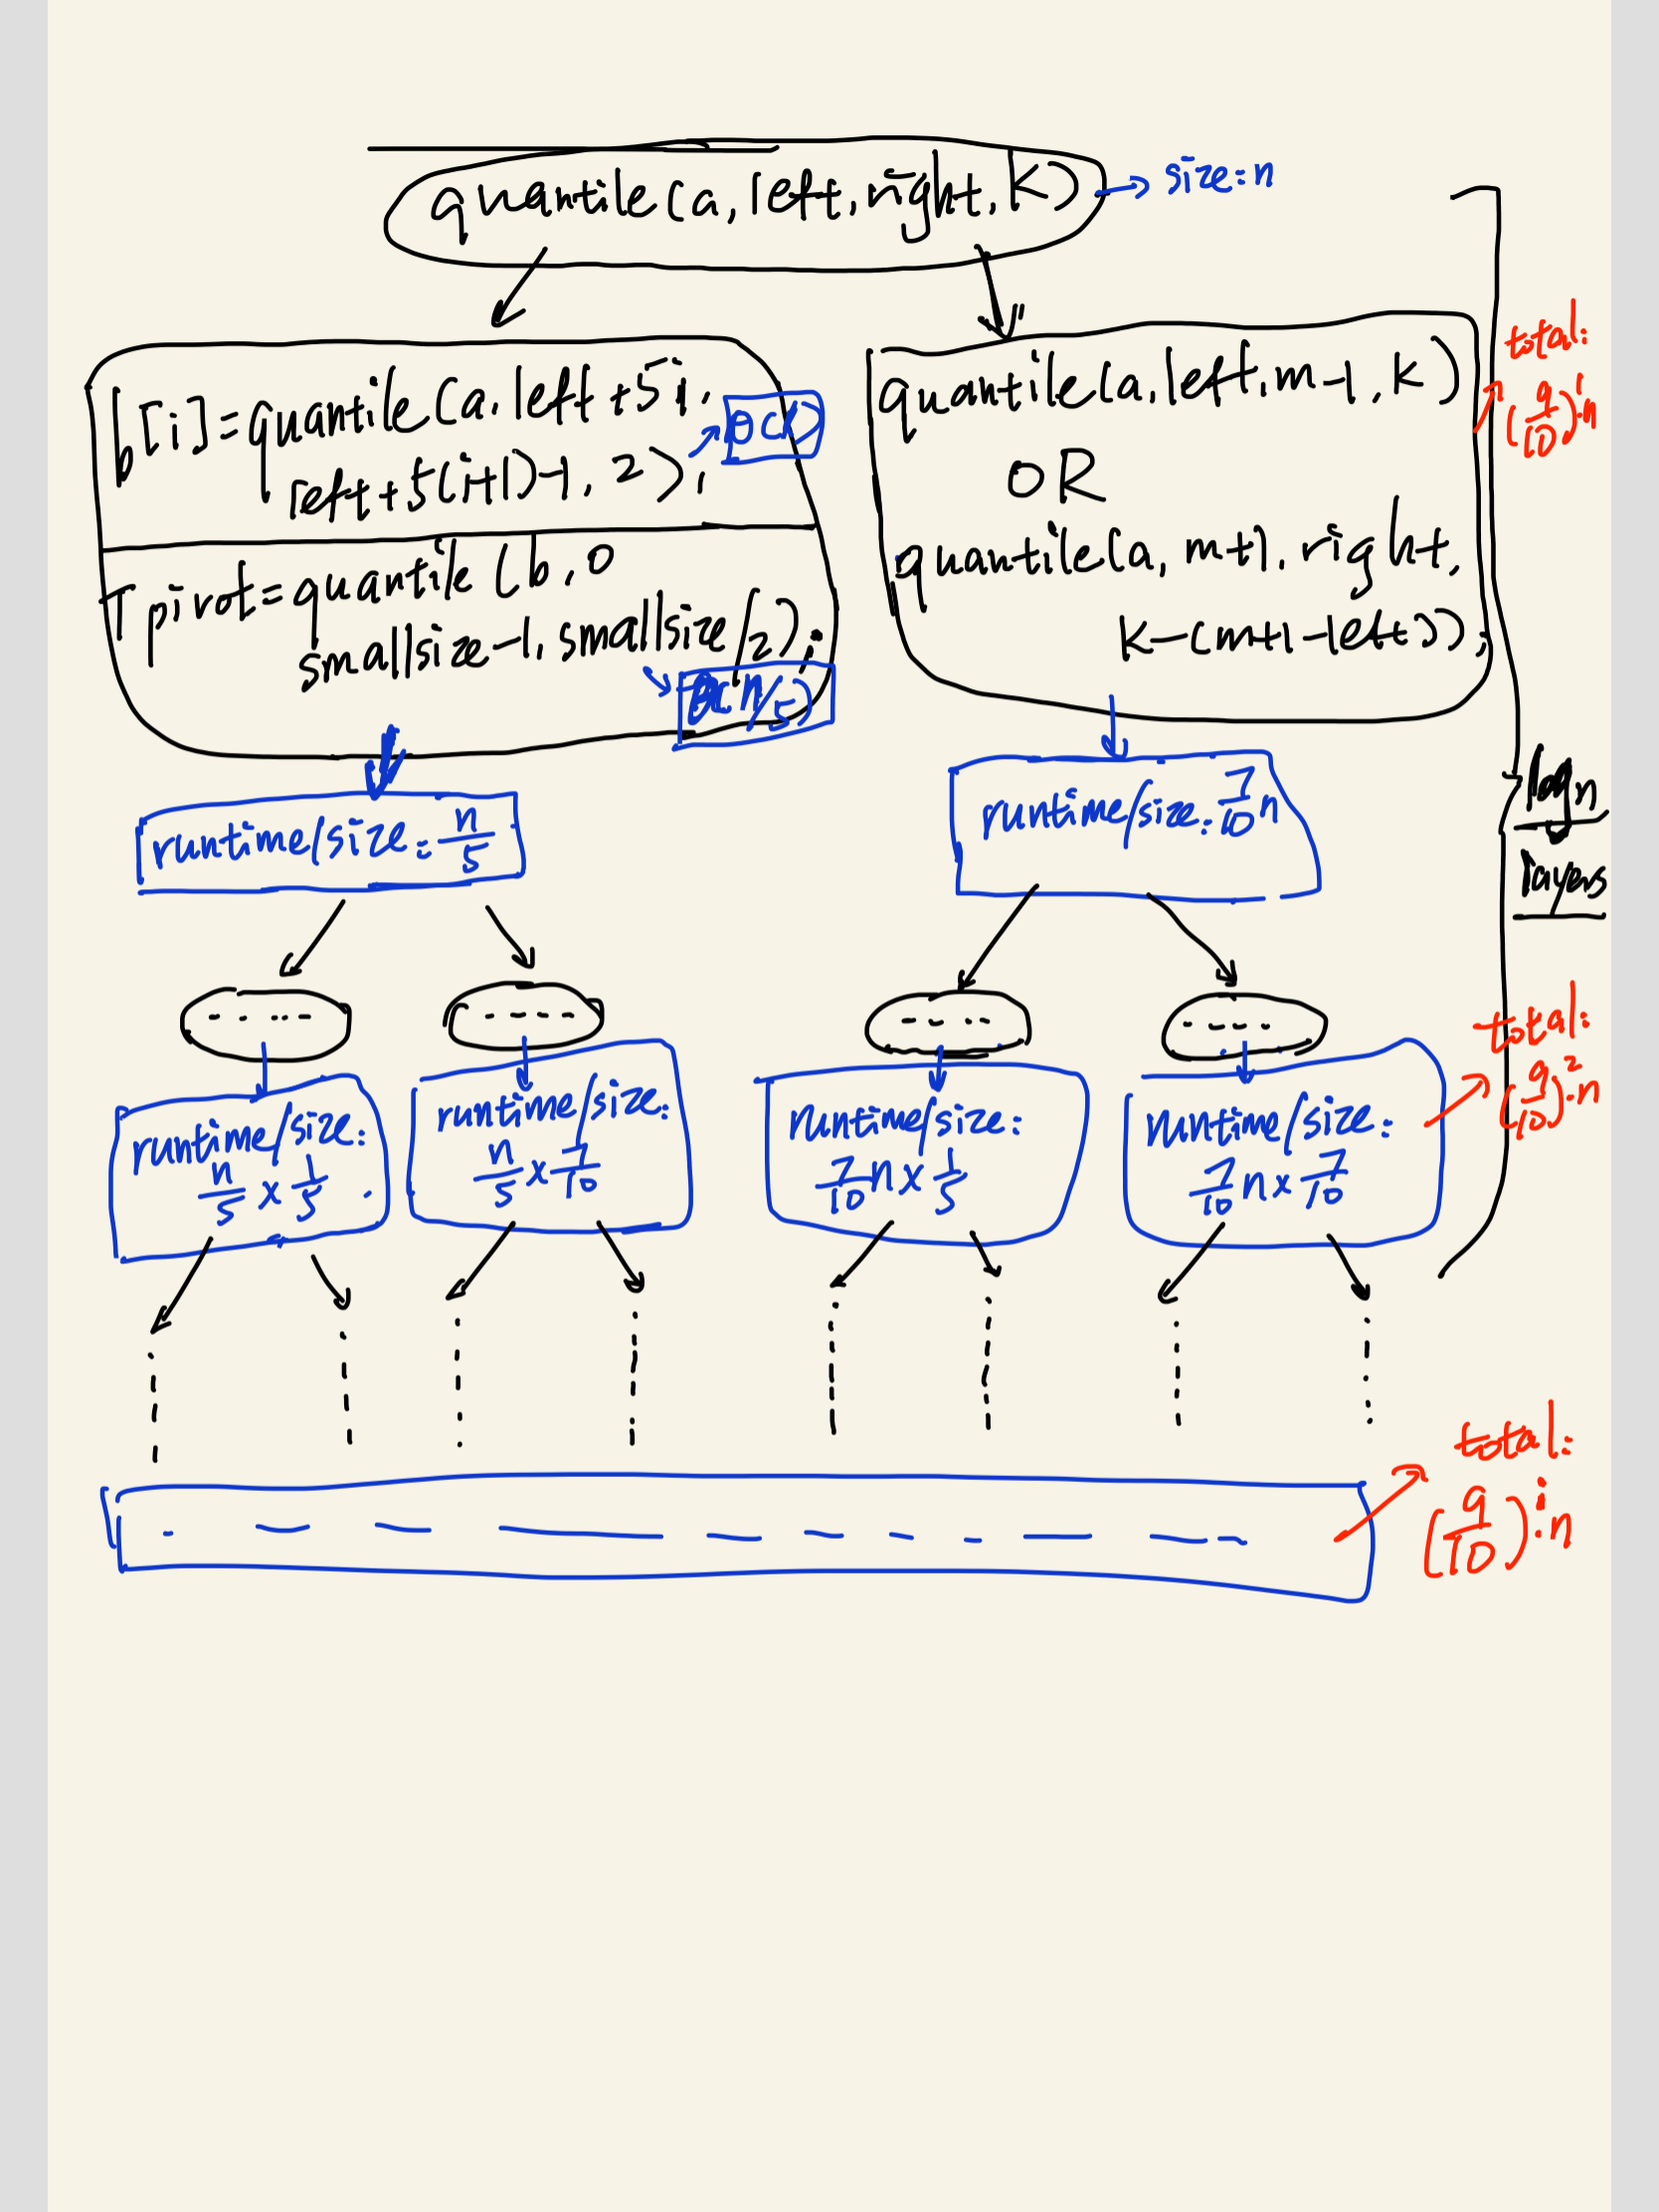 quantile(a, left, right, k)
size: n
b[i] = quantile(a, left + 5i,
left + 5(i+1) - 1, 2);
pivot = quantile(b, 0
smallsize - 1, smallsize/2);
quantile(a, left, m-1, k)
OR
quantile(a, m+1, right,
k-(m+1-left));
total:
(9/10)^i · n
runtime/size: n/5
runtime/size: 7/10 n
n
layers
runtime/size:
n/5 x 1/5
runtime/size:
n/5 x 7/10
runtime/size:
7/10 n x 1/5
runtime/size:
7/10 n x 7/10
total:
(9/10)^2 · n
total:
(9/10)^i · n